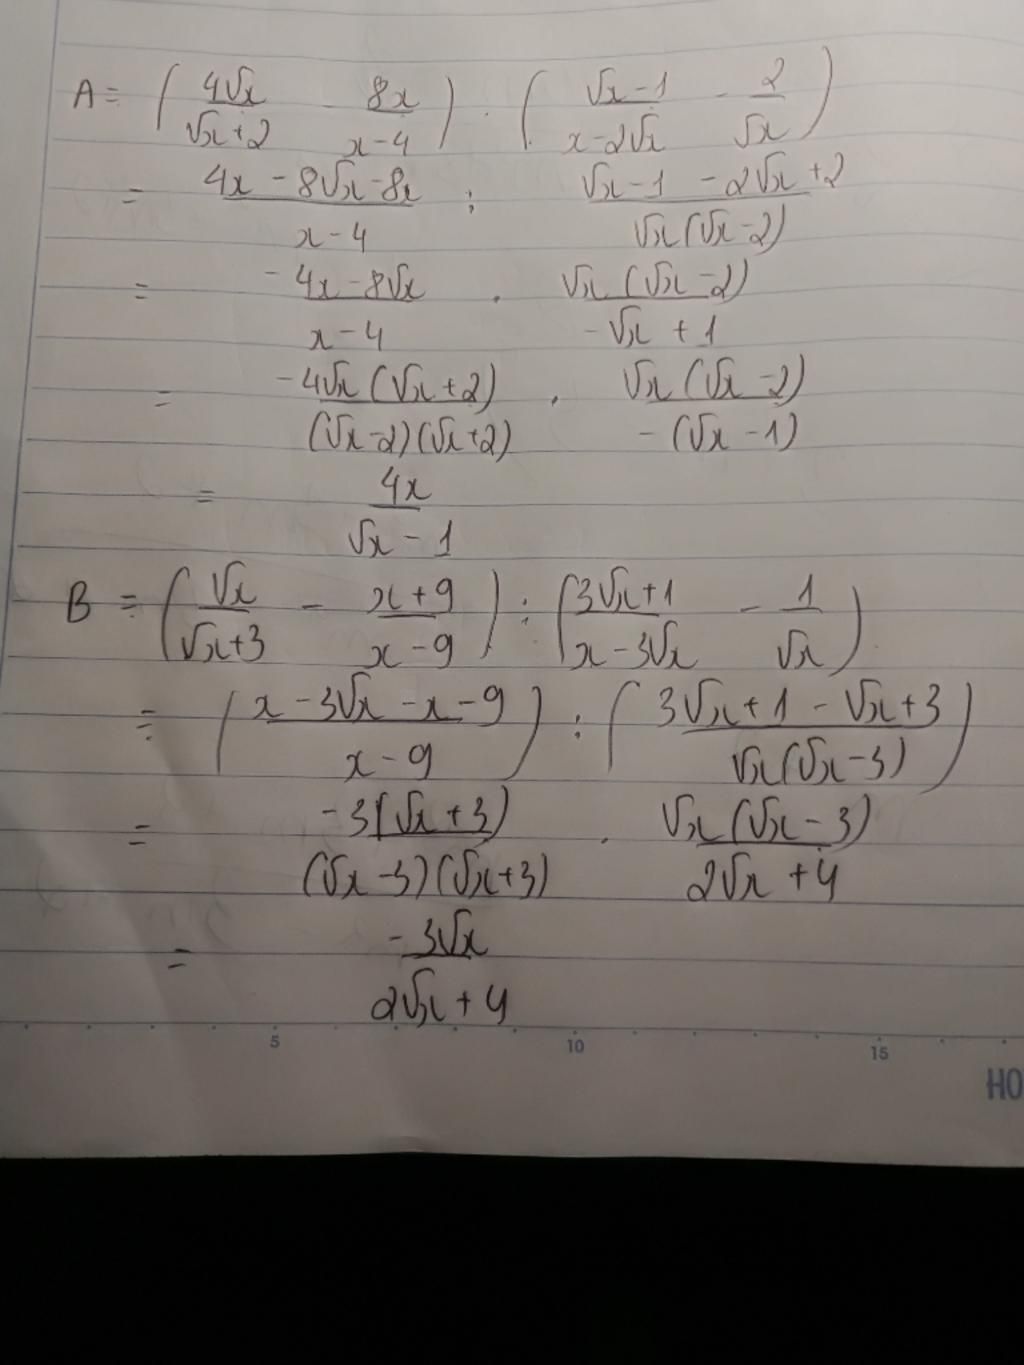 A = ( 4√x / √x+2 - 8x / x-4 ) : ( √x-1 / x-2√x - 2 / √x )
= 4x - 8√x - 8x / x-4 : √x-1 - 2√x+2 / √x(√x-2)
= -4x-8√x / x-4 . √x(√x-2) / -√x+1
= -4√x(√x+2) / (√x-2)(√x+2) . √x(√x-2) / -(√x-1)
= 4x / √x-1
B = ( √x / √x+3 - x+9 / x-9 ) : ( 3√x+1 / x-3√x - 1 / √x )
= ( x-3√x-x-9 / x-9 ) : ( 3√x+1-√x+3 / √x(√x-3) )
= -3(√x+3) / (√x-3)(√x+3) . √x(√x-3) / 2√x+4
= -3√x / 2√x+4
5 10 15
HO